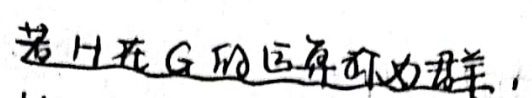 若 H 在 G 的运算亦为群,